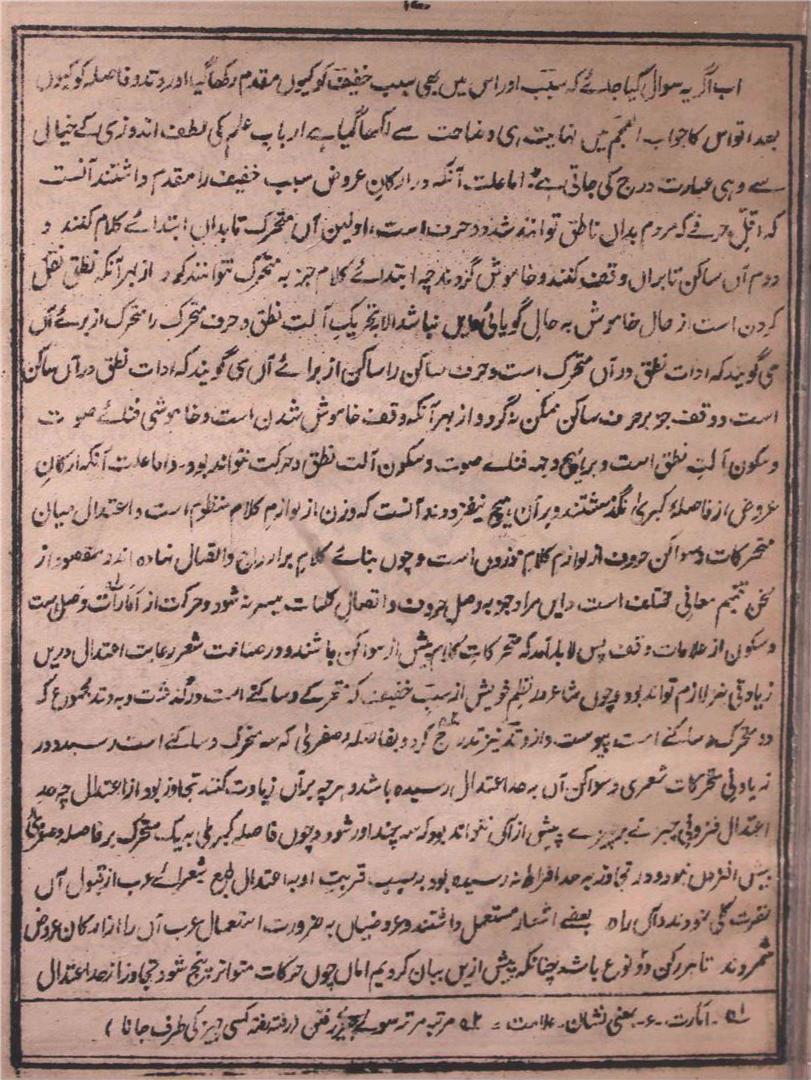 ۱۲
اب اگر یہ سوال کیا جائے کہ سبب اور اس میں بھی سبب خفیف کو کیوں مقدم رکھا گیا اور وتد و فاصلہ کو کیوں
بعد اتو اس کا جواب المعجم میں نہایت ہی وضاحت سے لکھا گیا ہے ارباب علم کی لطف اندوزی کے خیال
سے وہی عبارت درج کی جاتی ہے۔ اما علت آنکہ در ارکان عروض سبب خفیف را مقدم داشتند آنست
کہ اقل حرفے کہ مردم بداں ناطق توانند شد دو حرف است، اولین آں متحرک تا بداں ابتدائے کلام کنند و
دوم آں ساکن تا براں وقف کنند و خاموش گردند چہ ابتدائے کلام جز بہ متحرک نتوانند کرد از بہر آنکہ نطق نقل
کردن است از حال خاموش بہ حال گویائی و ایں نباشد الا بتحریک آلت نطق و حرف متحرک را متحرک از برائے آں
می گویند کہ ادات نطق در آں متحرک است و حرف ساکن را ساکن از برائے آں می گویند کہ ادات نطق در آں ساکن
است و وقف جز بر حرف ساکن ممکن نہ گردد از بہر آنکہ وقف خاموش شدن است و خاموشی فنائے صوت
و سکون آلت نطق است و بر ہیچ وجہ فنائے صوت و سکون آلت نطق و حرکت نتواند بود۔ و اما علت آنکہ ارکان
عروض از فاصلۂ کبریٰ نگذشتند و بر آن ہیچ نیفزودند آنست کہ وزن از لوازم کلام منظوم است و اعتدال میان
متحرکات و سواکن حروف از لوازم کلام موزوں است و چوں بنائے کلام بر ادراج و اتصال نہادہ اند مقصود از
سخن تفہیم معانی مختلف است و ایں مراد جز بہ وصل حروف و اتصال کلمات میسر نہ شود و حرکت از امارات وصل است
و سکون از علامات وقف پس لابد آمد کہ متحرکات کلام بیش از سواکن باشند و در صناعت شعر رعایت اعتدال دریں
زیادتی نیز لازم تواند بود و چوں شاعر در نظم خویش از سبب خفیف کہ متحرکے و ساکنے است در گذشت و بہ وتد مجموع کہ
دو متحرک و ساکنے است پیوست و از وتد نیز تدرج کرد و بفاصلہ صغریٰ کہ سہ متحرک و ساکنے است رسید در
زیادتی متحرکات شعری و سواکن آں بہ حد اعتدال رسیدہ باشد و ہرچہ براں زیادت کنند تجاوز بود از اعتدال چہ حد
اعتدال فزونی چیزے بر چیزے بیش از آں نتواند بود کہ سہ چند اور شود و چوں فاصلہ کبریٰ بہ یک متحرک بر فاصلہ صغریٰ
بیش افزوں نبود و در تجاوز بہ حد افراط نہ رسیدہ بود بہ سبب قربت او بہ اعتدال طبع شعرائے عرب از قبول آں
نفرت کلی ننمودند و آں را در بعضے اشعار مستعمل داشتند و عروضیاں بہ ضرورت استعمال عرب آں را از ارکان عروض
شمردند تا ہر رکن دو نوع باشد چنانکہ پیش ازیں بیان کردیم اماں چوں حرکات متواتر پنج شود تجاوز از حد اعتدال
۱؎۔ امارت۔ ع۔ بمعنی نشان۔ علامت = ۲؎ مرتبہ مرتبہ سوئے چیزے رفتن (رفتہ رفتہ کسی چیز کی طرف جانا)